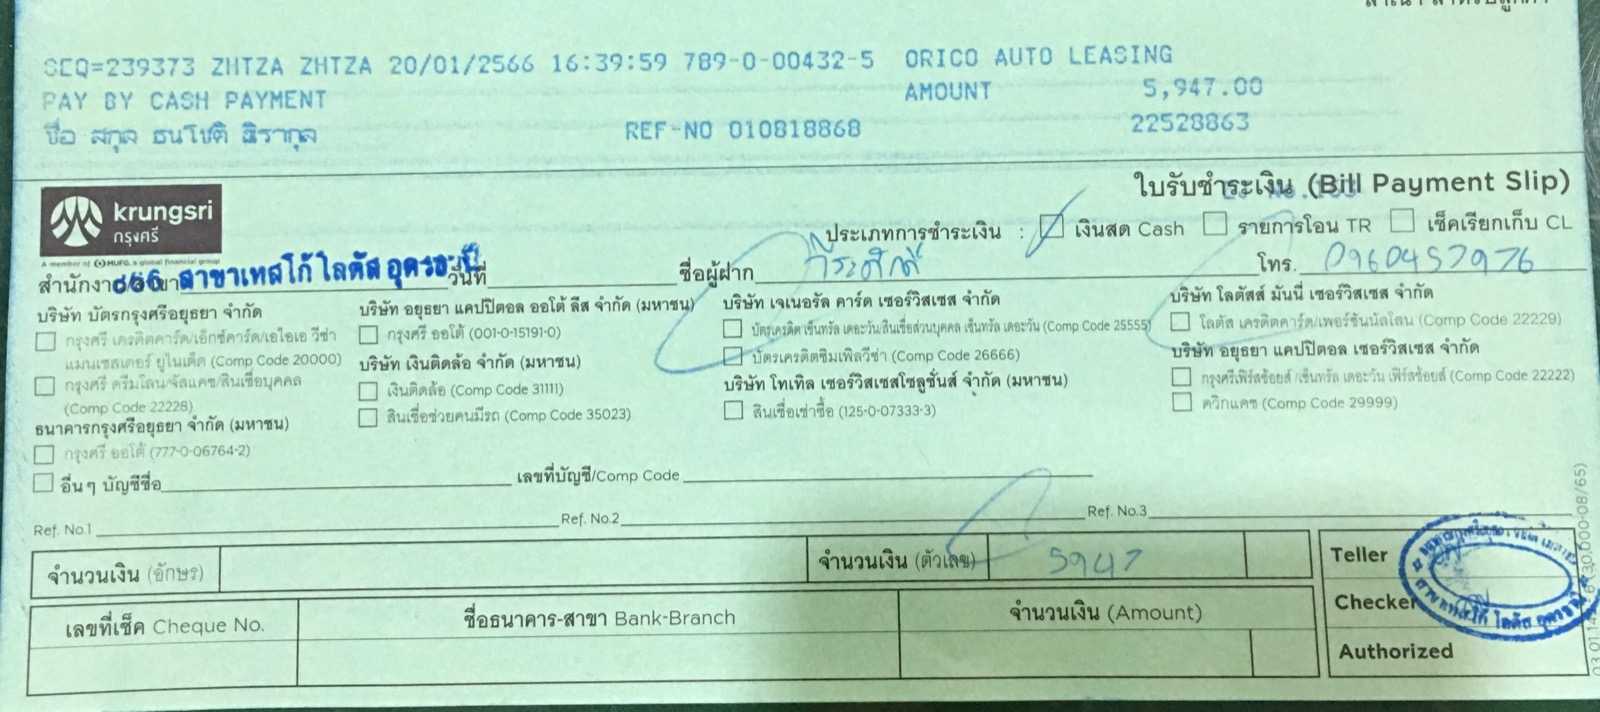 สำเนา สำหรับลูกค้า
SEQ=239373 ZHTZA ZHTZA 20/01/2566 16:39:59 789-0-00432-5 ORICO AUTO LEASING
PAY BY CASH PAYMENT AMOUNT 5,947.00
ชื่อ สกุล ธนโชติ ธิรากุล REF-NO 010818868 22528863
ใบรับชำระเงิน (Bill Payment Slip)
krungsri
กรุงศรี
A member of MUFG, a global financial group
ประเภทการชำระเงิน : เงินสด Cash รายการโอน TR เช็คเรียกเก็บ CL
สำนักงาน/สาขา 066 สาขาเทสโก้ โลตัส อุดรธานี วันที่ ชื่อผู้ฝาก วีระศักดิ์ โทร. 0960457976
บริษัท บัตรกรุงศรีอยุธยา จำกัด
กรุงศรี เครดิตคาร์ด/เอ็กซ์คาร์ด/เอไอเอ วีซ่า
แมนเชสเตอร์ ยูไนเต็ด (Comp Code 20000)
กรุงศรี ดรีมโลน/จัสแคช/สินเชื่อบุคคล
(Comp Code 22228)
ธนาคารกรุงศรีอยุธยา จำกัด (มหาชน)
กรุงศรี ออโต้ (777-0-06764-2)
บริษัท อยุธยา แคปปิตอล ออโต้ ลีส จำกัด (มหาชน)
กรุงศรี ออโต้ (001-0-15191-0)
บริษัท เงินติดล้อ จำกัด (มหาชน)
เงินติดล้อ (Comp Code 31111)
สินเชื่อช่วยคนมีรถ (Comp Code 35023)
บริษัท เจเนอรัล คาร์ด เซอร์วิสเซส จำกัด
บัตรเครดิต เซ็นทรัล เดอะวัน/สินเชื่อส่วนบุคคล เซ็นทรัล เดอะวัน (Comp Code 25555)
บัตรเครดิตซิมเพิลวีซ่า (Comp Code 26666)
บริษัท โทเทิล เซอร์วิสเซสโซลูชั่นส์ จำกัด (มหาชน)
สินเชื่อเช่าซื้อ (125-0-07333-3)
บริษัท โลตัสส์ มันนี่ เซอร์วิสเซส จำกัด
โลตัส เครดิตคาร์ด/เพอร์ซันนัลโลน (Comp Code 22229)
บริษัท อยุธยา แคปปิตอล เซอร์วิสเซส จำกัด
กรุงศรีเฟิร์สช้อยส์/เซ็นทรัล เดอะวัน เฟิร์สช้อยส์ (Comp Code 22222)
ควิกแคช (Comp Code 29999)
อื่นๆ บัญชีชื่อ เลขที่บัญชี/Comp Code
Ref. No.1 Ref. No.2 Ref. No.3
จำนวนเงิน (อักษร) จำนวนเงิน (ตัวเลข) 5947
เลขที่เช็ค Cheque No. ชื่อธนาคาร-สาขา Bank-Branch จำนวนเงิน (Amount)
Teller
Checker
Authorized